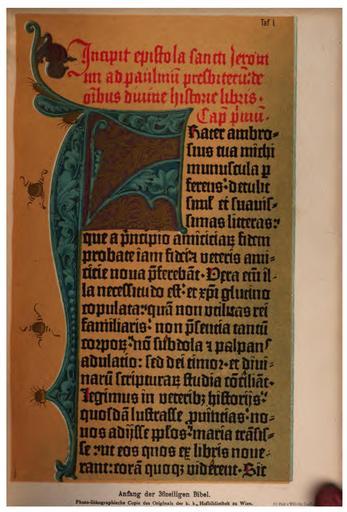 Taf I.
Incipit epistola sancti Jeroni
mi ad paulinū presbiterū: de
oībus diuine historie libris.
Cap̄ p̄imū.
Frater ambro-
sius tua michi
munuscula p
ferens: detulit
simĺ et suauis-
simas litteras:
que a p̄ncipio amiciciaꝝ fidem
probate iam fidei ꝛ veteris ami-
cicie noua p̄ferebāt. Vera em̄ il-
la necessitudo est: et xp̄i glutino
copulata: quā non vtilitas rei
familiaris: non p̄sentia tantū
corpoꝝ: nō subdola ꝛ palpans
adulatio: sed dei timor: et diui-
narū scripturaꝝ studia cōciliāt.
Legimus in veteribꝫ historijs:
quosdā lustrasse puincias: no-
uos adijsse pp̄los: maria trāsis-
se: ut eos quos ex libris noue-
rant: corā quoqꝫ viderent. Sic
Anfang der 36zeiligen Bibel.
Photo-lithographische Copie des Originals der k. k. Hofbibliothek zu Wien.